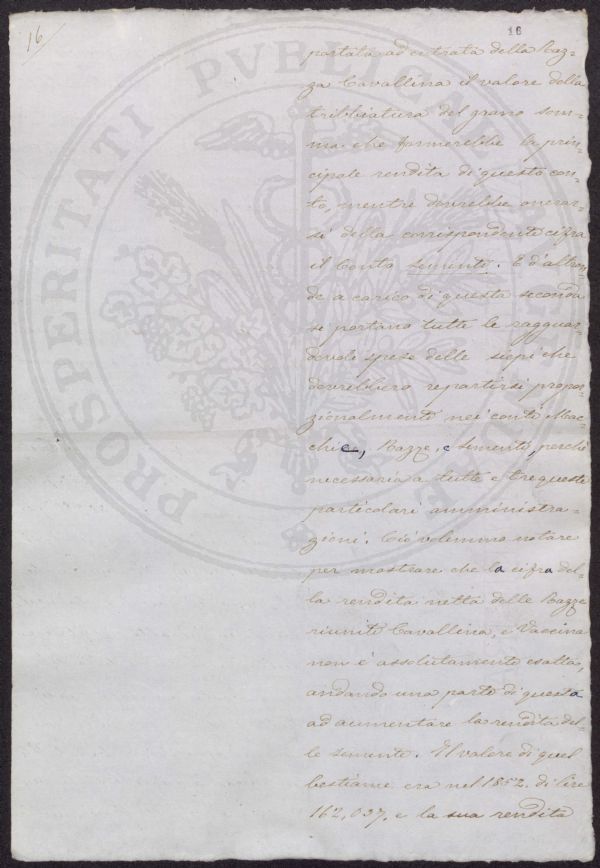 16
16
portata ad entrata della Raz-
za Cavallina il valore della
tribbiatura del grano som-
ma che formerebbe la prin-
cipale rendita di questo con-
to, mentre dovrebbe onerar-
si della corrispondente cifra
il Conto sementi. E d'altron-
de a carico di questa seconda
si portano tutte le ragguar-
devoli spese delle siepi che
dovrebbero repartirsi propor-
zionalmente nei conti Mac-
chie, Razze, e sementi, perchè
necessaria a tutte e tre queste
particolari amministra-
zioni. Ciò volemmo notare
per mostrare che la cifra del-
la rendita netta delle Razze
riunite Cavallina, e Vaccina
non è assolutamente esatta,
andando una parte di questa
ad aumentare la rendita del-
le semente. Il valore di quel
bestiame era nel 1852. di lire
162,037. e la sua rendita
PROSPERITATI PVBLICAE AVGENDAE